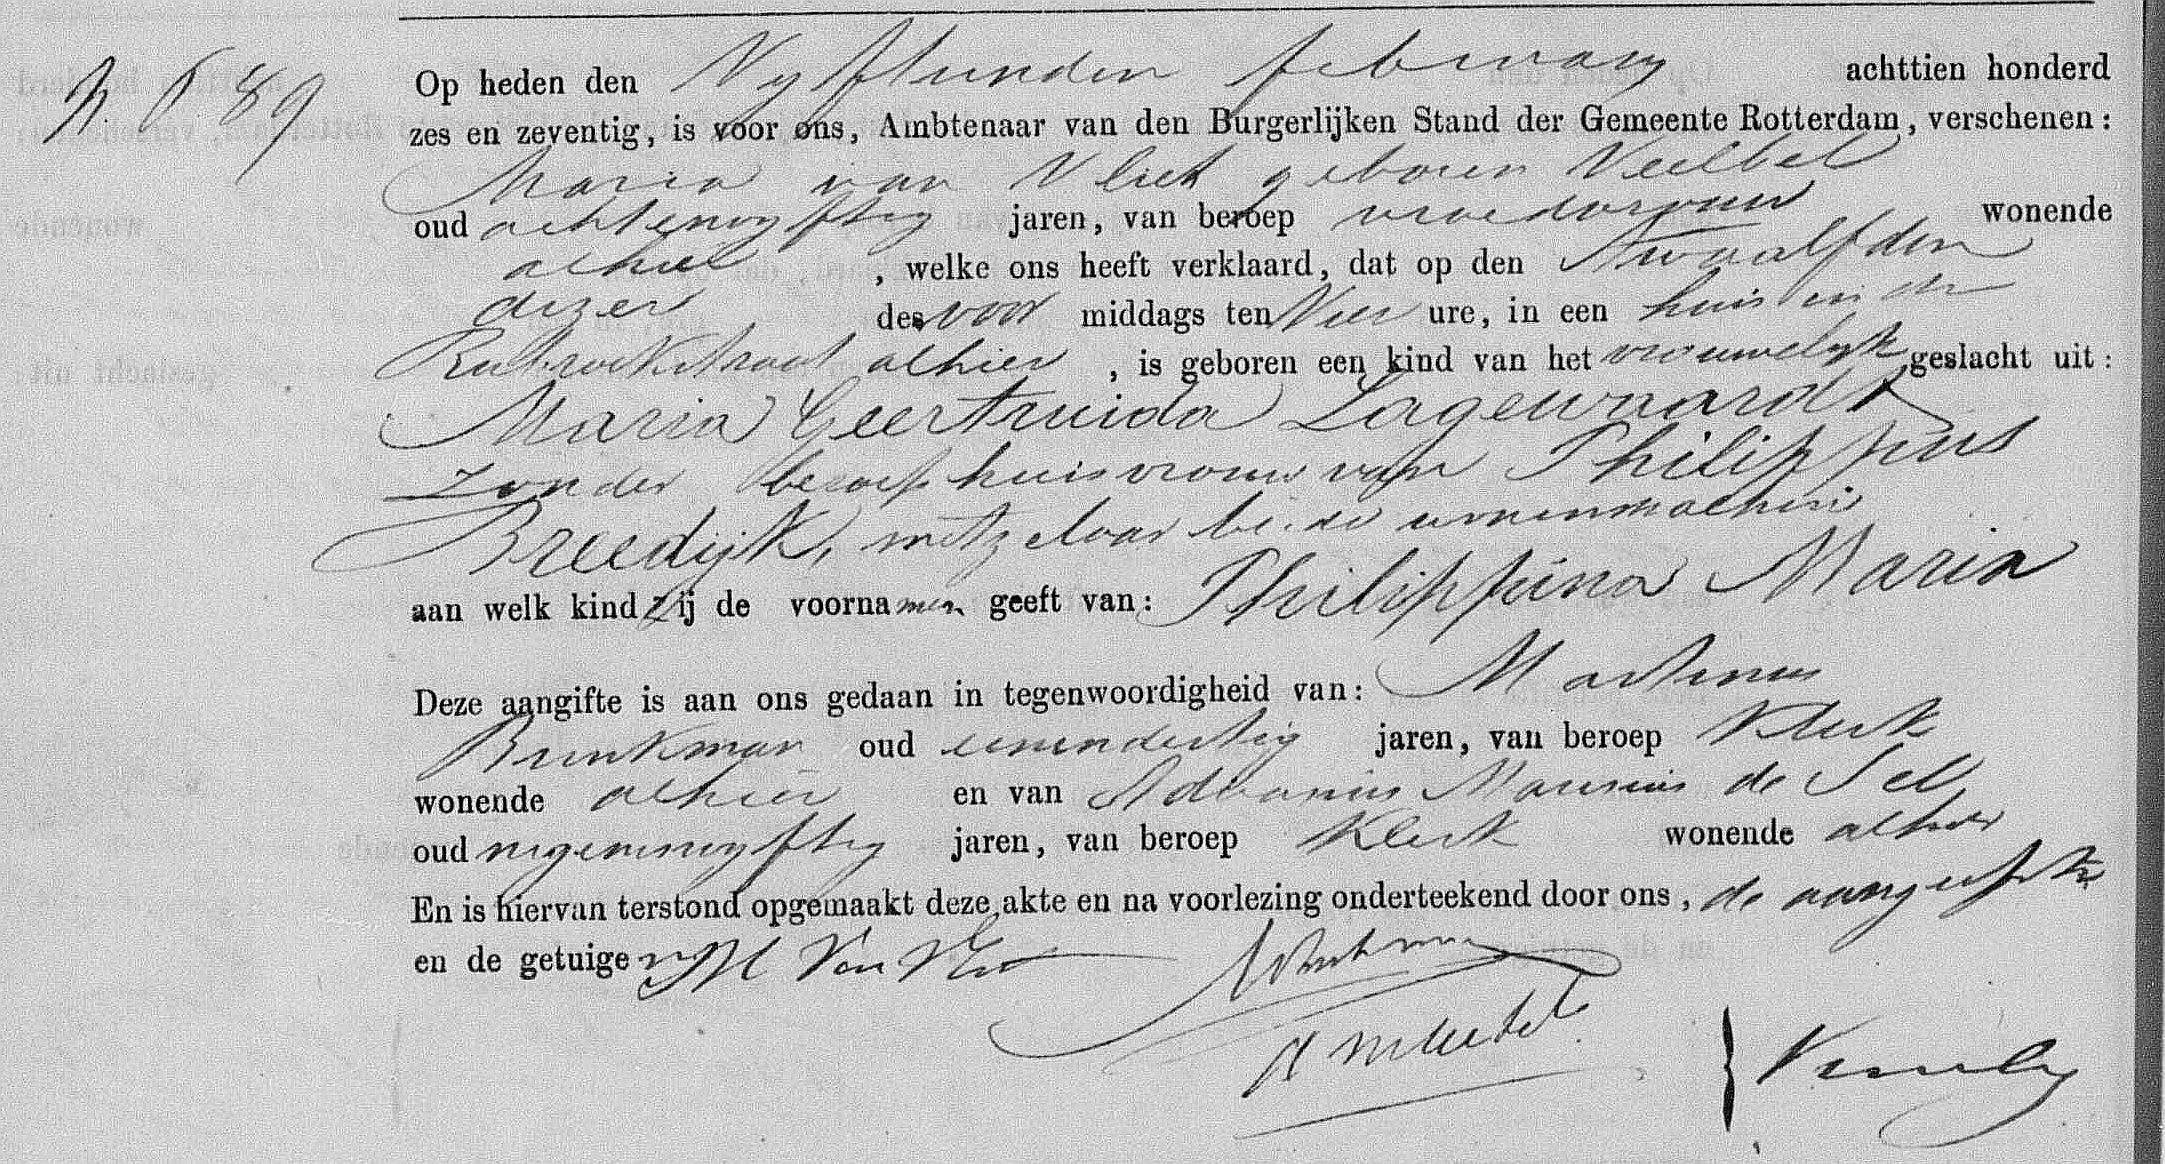 N. 589
Op heden den Vyftienden februarij achttien honderd
zes en zeventig, is voor ons, Ambtenaar van den Burgerlijken Stand der Gemeente Rotterdam, verschenen:
Maria van Vliet geboren
oud achtenvyftig jaren, van beroep vroedvrouw wonende
alhier, welke ons heeft verklaard, dat op den Twaalfden
dezer des voor middags ten Vier ure, in een huis in de
Rubroekstraat alhier, is geboren een kind van het vrouwelyk geslacht uit:
Maria Geertruida Lagewaardt
zonder beroep huisvrouw van Philippus
Breedijk, metzelaar beide wonen alhier
aan welk kind zij de voornamen geeft van: Philippina Maria
Deze aangifte is aan ons gedaan in tegenwoordigheid van: Martinus
Brinkman oud eenendertig jaren, van beroep Klerk
wonende alhier en van Adrianus Marinus de
oud negenenvyftig jaren, van beroep Klerk wonende alhier
En is hiervan terstond opgemaakt deze akte en na voorlezing onderteekend door ons, de aangeefster
en de getuigen
M Van